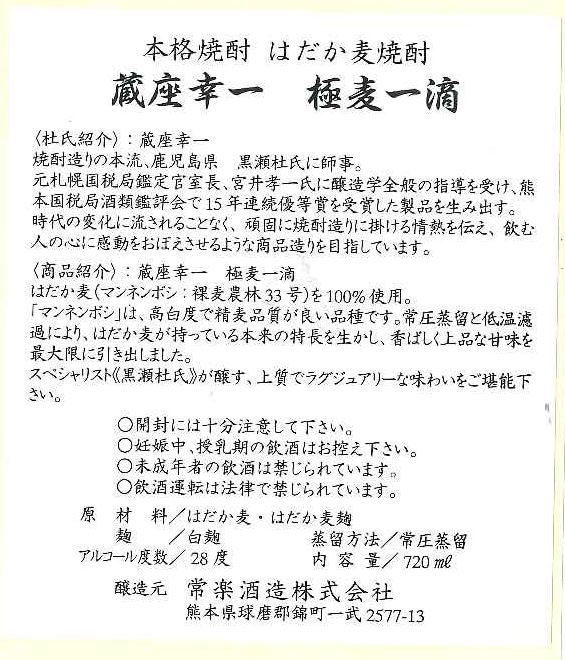 本格焼酎 はだか麦焼酎
蔵座幸一 極麦一滴
〈杜氏紹介〉：蔵座幸一
焼酎造りの本流、鹿児島県 黒瀬杜氏に師事。
元札幌国税局鑑定官室長、宮井孝一氏に醸造学全般の指導を受け、熊
本国税局酒類鑑評会で15年連続優等賞を受賞した製品を生み出す。
時代の変化に流されることなく、頑固に焼酎造りに掛ける情熱を伝え、飲む
人の心に感動をおぼえさせるような商品造りを目指しています。
〈商品紹介〉：蔵座幸一 極麦一滴
はだか麦（マンネンボシ：裸麦農林33号）を100%使用。
「マンネンボシ」は、高白度で精麦品質が良い品種です。常圧蒸留と低温濾
過により、はだか麦が持っている本来の特長を生かし、香ばしく上品な甘味を
最大限に引き出しました。
スペシャリスト《黒瀬杜氏》が醸す、上質でラグジュアリーな味わいをご堪能下
さい。
○開封には十分注意して下さい。
○妊娠中、授乳期の飲酒はお控え下さい。
○未成年者の飲酒は禁じられています。
○飲酒運転は法律で禁じられています。
原材料／はだか麦・はだか麦麹
麹／白麹 蒸留方法／常圧蒸留
アルコール度数／28度 内容量／720㎖
醸造元 常楽酒造株式会社
熊本県球磨郡錦町一武2577-13